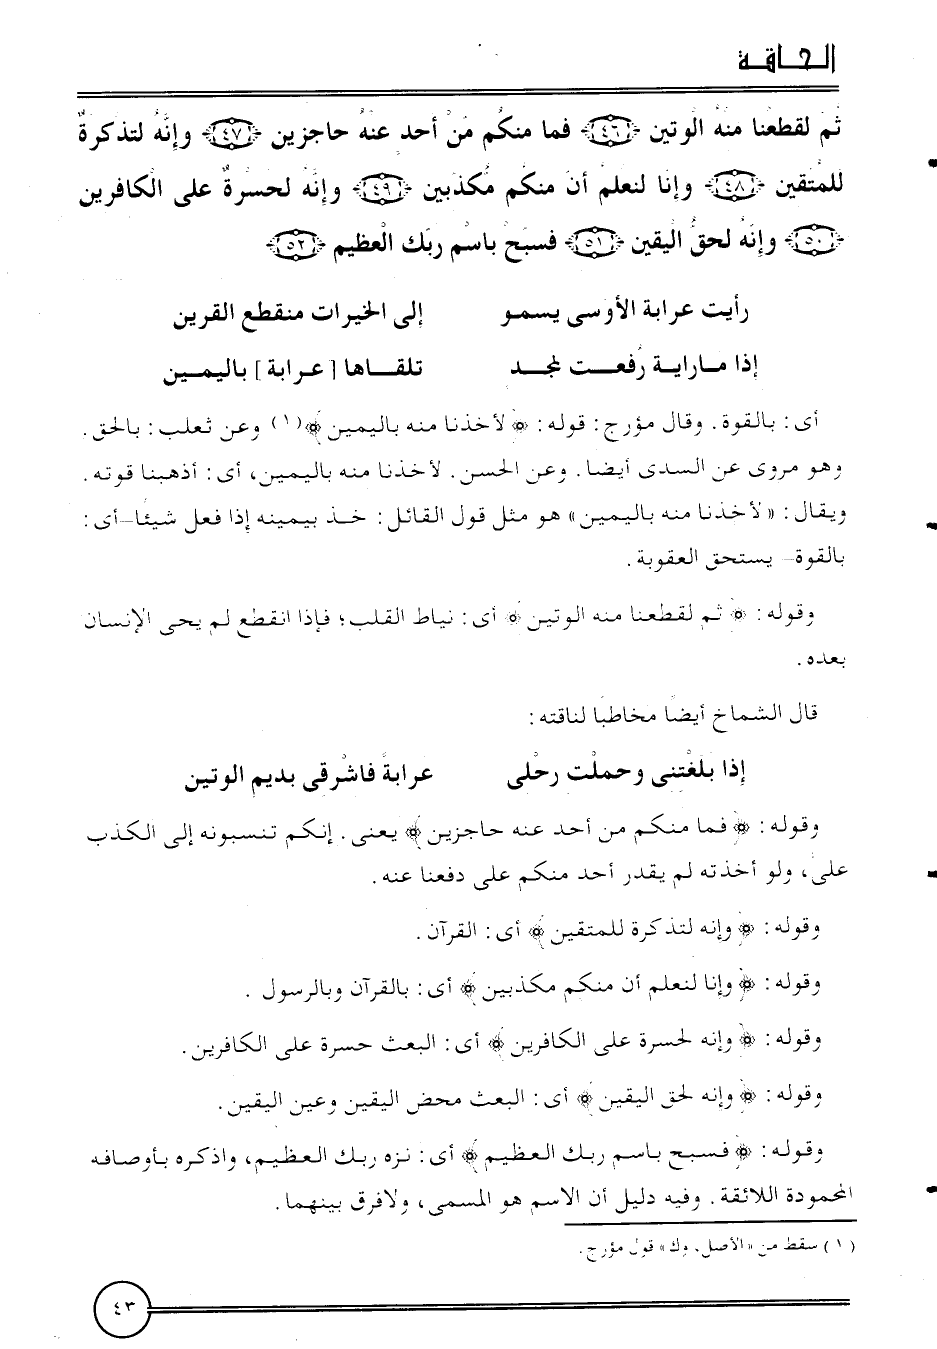 الحاقة
ثم لقطعنا منه الوتين ﴿٤٦﴾ فما منكم من أحد عنه حاجزين ﴿٤٧﴾ وإنه لتذكرة
للمتقين ﴿٤٨﴾ وإنا لنعلم أن منكم مكذبين ﴿٤٩﴾ وإنه لحسرة على الكافرين
﴿٥٠﴾ وإنه لحق اليقين ﴿٥١﴾ فسبح باسم ربك العظيم ﴿٥٢﴾
رأيت عرابة الأوسى يسمو إلى الخيرات منقطع القرين
إذا ما راية رُفعت لمجد تلقاها [عرابة] باليمين
أى: بالقوة. وقال مؤرج: قوله: ﴿لأخذنا منه باليمين﴾(١) وعن ثعلب: بالحق.
وهو مروى عن السدى أيضا. وعن الحسن. لأخذنا منه باليمين، أى: أذهبنا قوته.
ويقال: «لأخذنا منه باليمين» هو مثل قول القائل: خذ بيمينه إذا فعل شيئًا–أى:
بالقوة– يستحق العقوبة.
وقوله: ﴿ثم لقطعنا منه الوتين﴾ أى: نياط القلب؛ فإذا انقطع لم يحى الإنسان
بعده.
قال الشماخ أيضًا مخاطبا لناقته:
إذا بلغْتنى وحملْت رحْلى عرابةَ فاشْرقى بديم الوتين
وقوله: ﴿فما منكم من أحد عنه حاجزين﴾ يعنى. إنكم تنسبونه إلى الكذب
علىّ، ولو أخذته لم يقدر أحد منكم على دفعنا عنه.
وقوله: ﴿وإنه لتذكرة للمتقين﴾ أى: القرآن.
وقوله: ﴿وإنا لنعلم أن منكم مكذبين﴾ أى: بالقرآن وبالرسول.
وقوله: ﴿وإنه لحسرة على الكافرين﴾ أى: البعث حسرة على الكافرين.
وقوله: ﴿وإنه لحق اليقين﴾ أى: البعث محض اليقين وعين اليقين.
وقوله: ﴿فسبح باسم ربك العظيم﴾ أى: نزه ربك العظيم، واذكره بأوصافه
المحمودة اللائقة. وفيه دليل أن الاسم هو المسمى، ولا فرق بينهما.
(١) سقط من «الأصل، وك» قول مؤرج.
٤٣